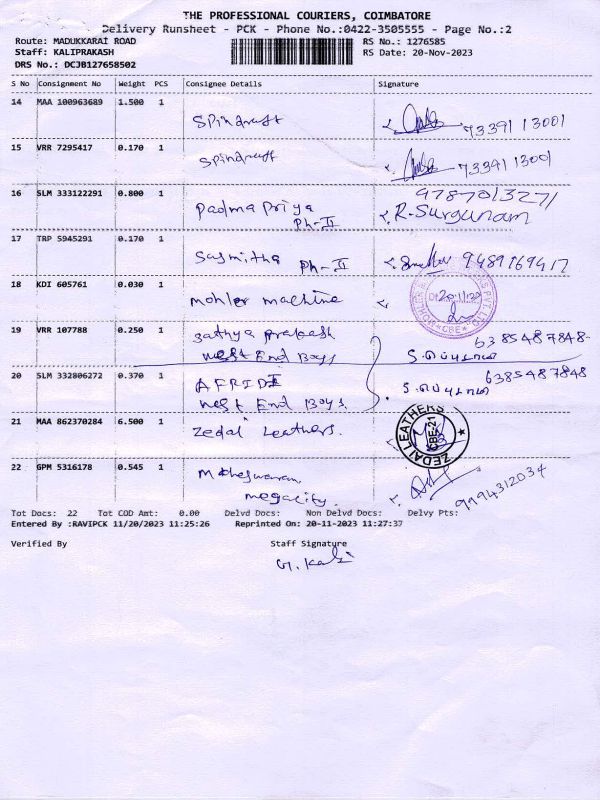 THE PROFESSIONAL COURIERS, COIMBATORE
Delivery Runsheet - PCK - Phone No.:0422-3505555 - Page No.:2
Route: MADUKKARAI ROAD RS No.: 1276585
Staff: KALIPRAKASH RS Date: 20-Nov-2023
DRS No.: DCJB127658502
S No Consignment No Weight PCS Consignee Details Signature
14 MAA 100963689 1.500 1
Spindraft 73391 13001
15 VRR 7295417 0.170 1
Spindraft 73391 13001
16 SLM 333122291 0.800 1 9787013271
Padma Priya R. Surgunam
Ph-II
17 TRP 5945291 0.170 1
Sasmitha Ph-II 9489169417
18 KDI 605761 0.030 1
mohler machine
19 VRR 107788 0.250 1
Sathya Prakash 6385487848
West End Boys
20 SLM 332806272 0.370 1 6385487848
AFRIDI
West End Boys.
21 MAA 862370284 6.500 1
Zedal Leathers. ZEDAL LEATHERS CBE-21
22 GPM 5316178 0.545 1
Maheswaran
megacity. 9994312034
Tot Docs: 22 Tot COD Amt: 0.00 Delvd Docs: Non Delvd Docs: Delvy Pts:
Entered By :RAVIPCK 11/20/2023 11:25:26 Reprinted On: 20-11-2023 11:27:37
Verified By Staff Signature
G. Kali